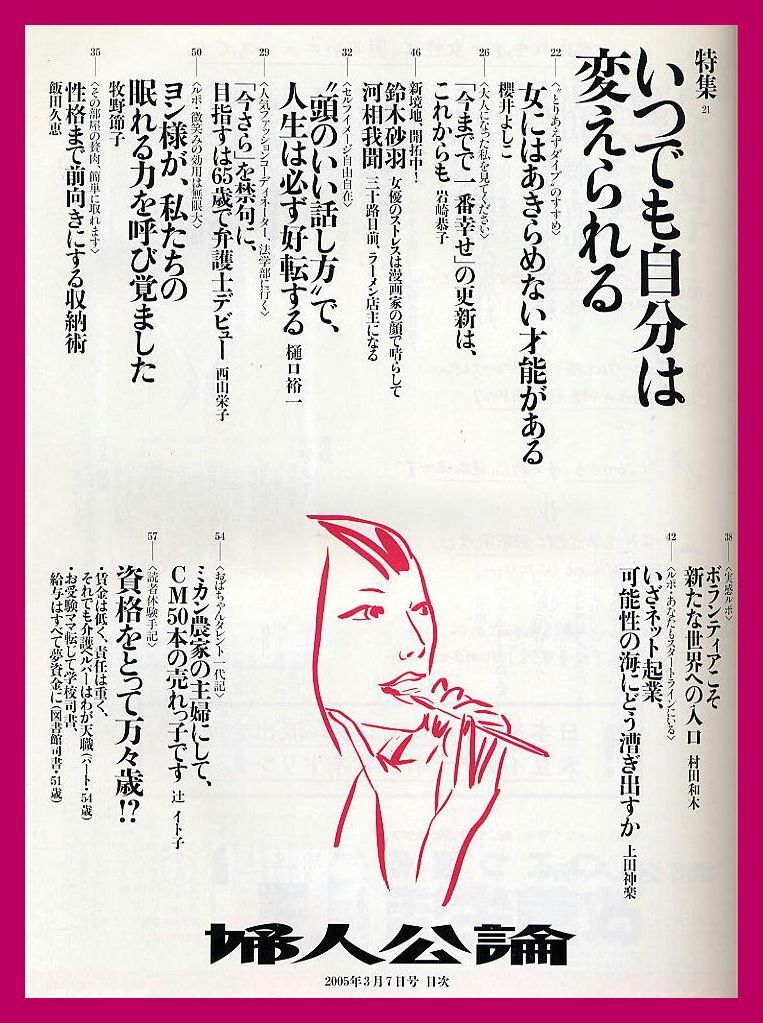 特集
21
いつでも自分は
変えられる
22
〈“とりあえずダイブ”のすすめ〉
女にはあきらめない才能がある
櫻井よしこ
26
〈大人になった私を見てください〉
「今までで一番幸せ」の更新は、
これからも 岩崎恭子
46
新境地、開拓中！
鈴木砂羽 女優のストレスは漫画家の顔で晴らして
河相我聞 三十路目前、ラーメン店主になる
32
〈セルフイメージ自由自在〉
“頭のいい話し方”で、
人生は必ず好転する 樋口裕一
29
〈人気ファッションコーディネーター、法学部に行く〉
「今さら」を禁句に、
目指すは65歳で弁護士デビュー 西山栄子
50
〈ルポ・微笑みの効用は無限大〉
ヨン様が、私たちの
眠れる力を呼び覚ました
牧野節子
35
〈その部屋の贅肉、簡単に取れます〉
性格まで前向きにする収納術
飯田久恵
38
〈実感ルポ〉
ボランティアこそ
新たな世界への入口 村田和木
42
〈ルポ・あなたもスタートラインにいる〉
いざネット起業、
可能性の海にどう漕ぎ出すか 上田神楽
54
〈おばちゃんタレント一代記〉
ミカン農家の主婦にして、
CM50本の売れっ子です 辻イト子
57
〈読者体験手記〉
資格をとって万々歳!?
・賃金は低く、責任は重く、
それでも介護ヘルパーはわが天職（パート・54歳）
・お受験ママ転じて学校司書、
給与はすべて夢資金に（図書館司書・51歳）
婦人公論
2005年3月7日号 目次